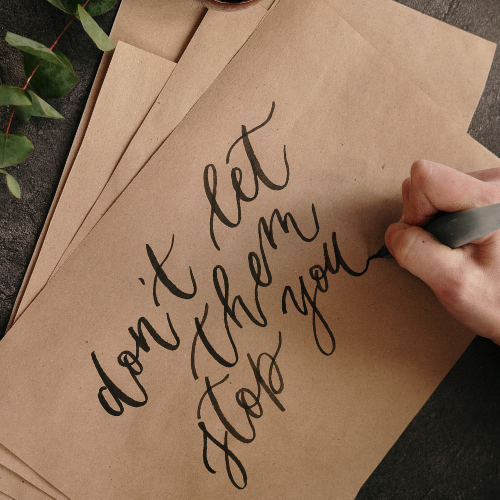 don't let
them
stop you